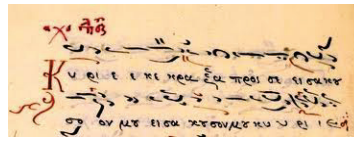 Κυ ρι ε ε κε κρα ξα προς σε εισακου
σο ον μου εισα κουσονμουκυ υ ρι ι ε